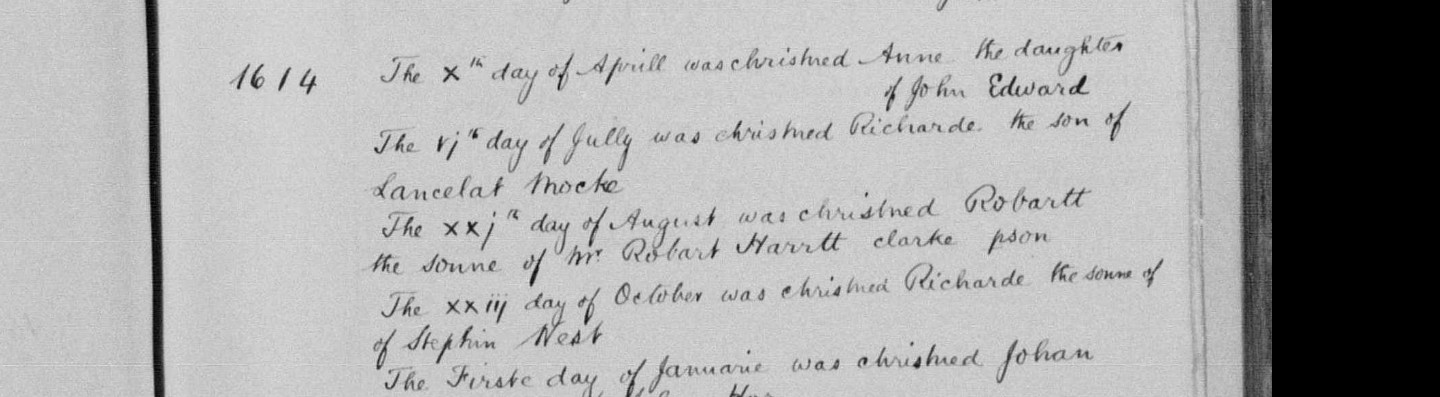 1614 The xth day of Aprill was christned Anne the daughter
of John Edward
The vjth day of Jully was christned Richarde the son of
Lancelat Mocke
The xxjth day of August was christned Robartt
the sonne of Mr. Robart Harrtt clarke pson
The xxiij day of October was christned Richarde the sonne of
of Stephin West
The Firste day of Januarie was christned Johan